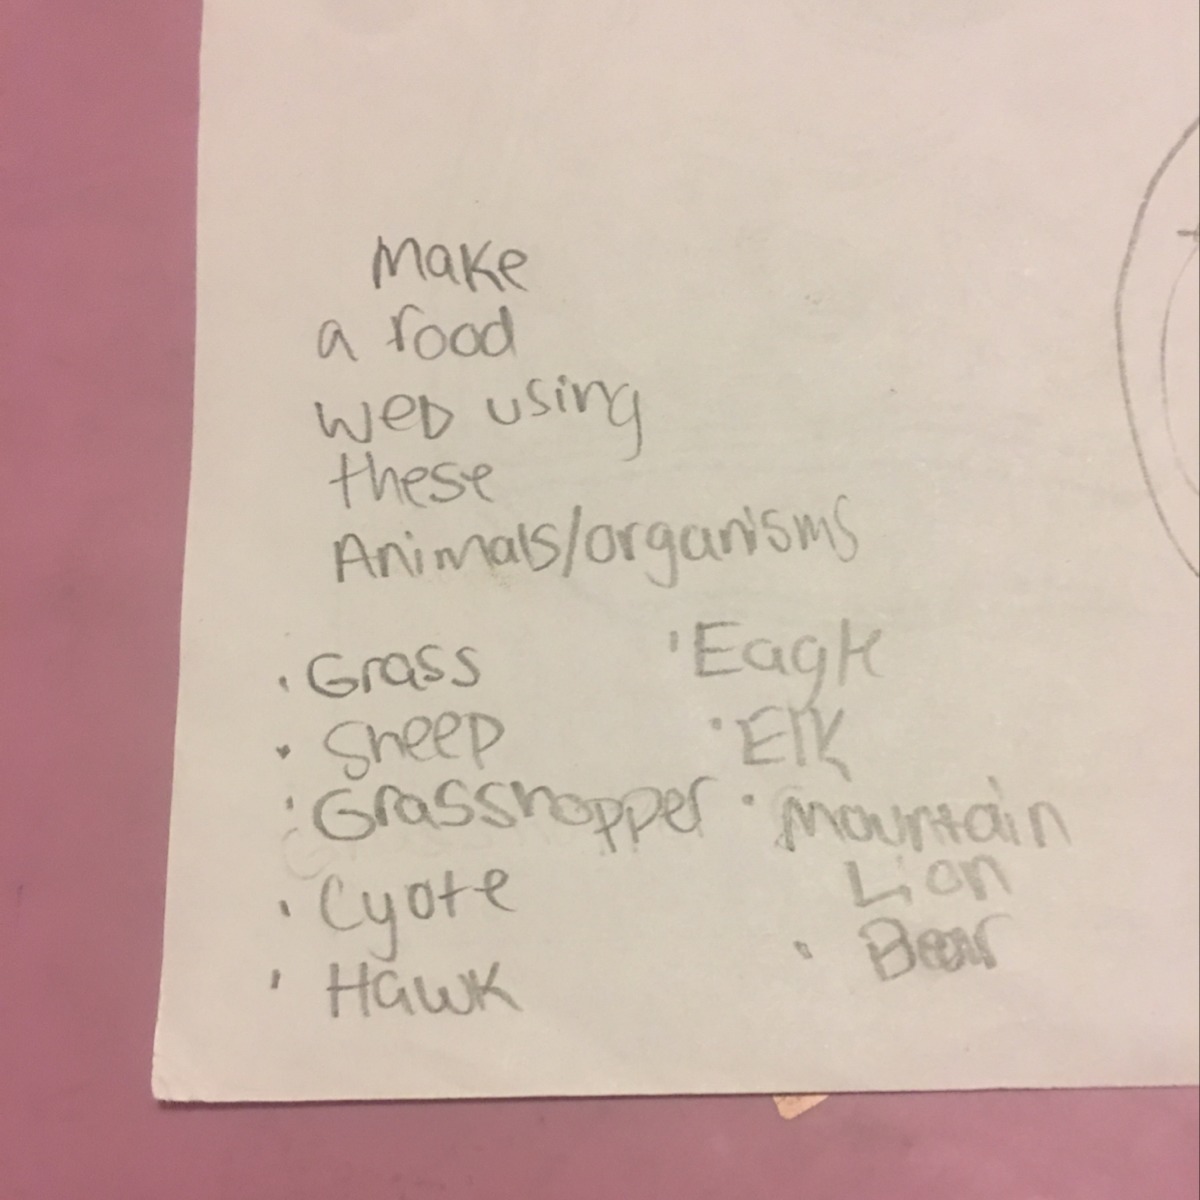 Make
a food
web using
these
Animals/organisms
· Grass
· Sheep
· Grasshopper
· Cyote
· Hawk
· Eagle
· Elk
· Mountain
Lion
· Bear